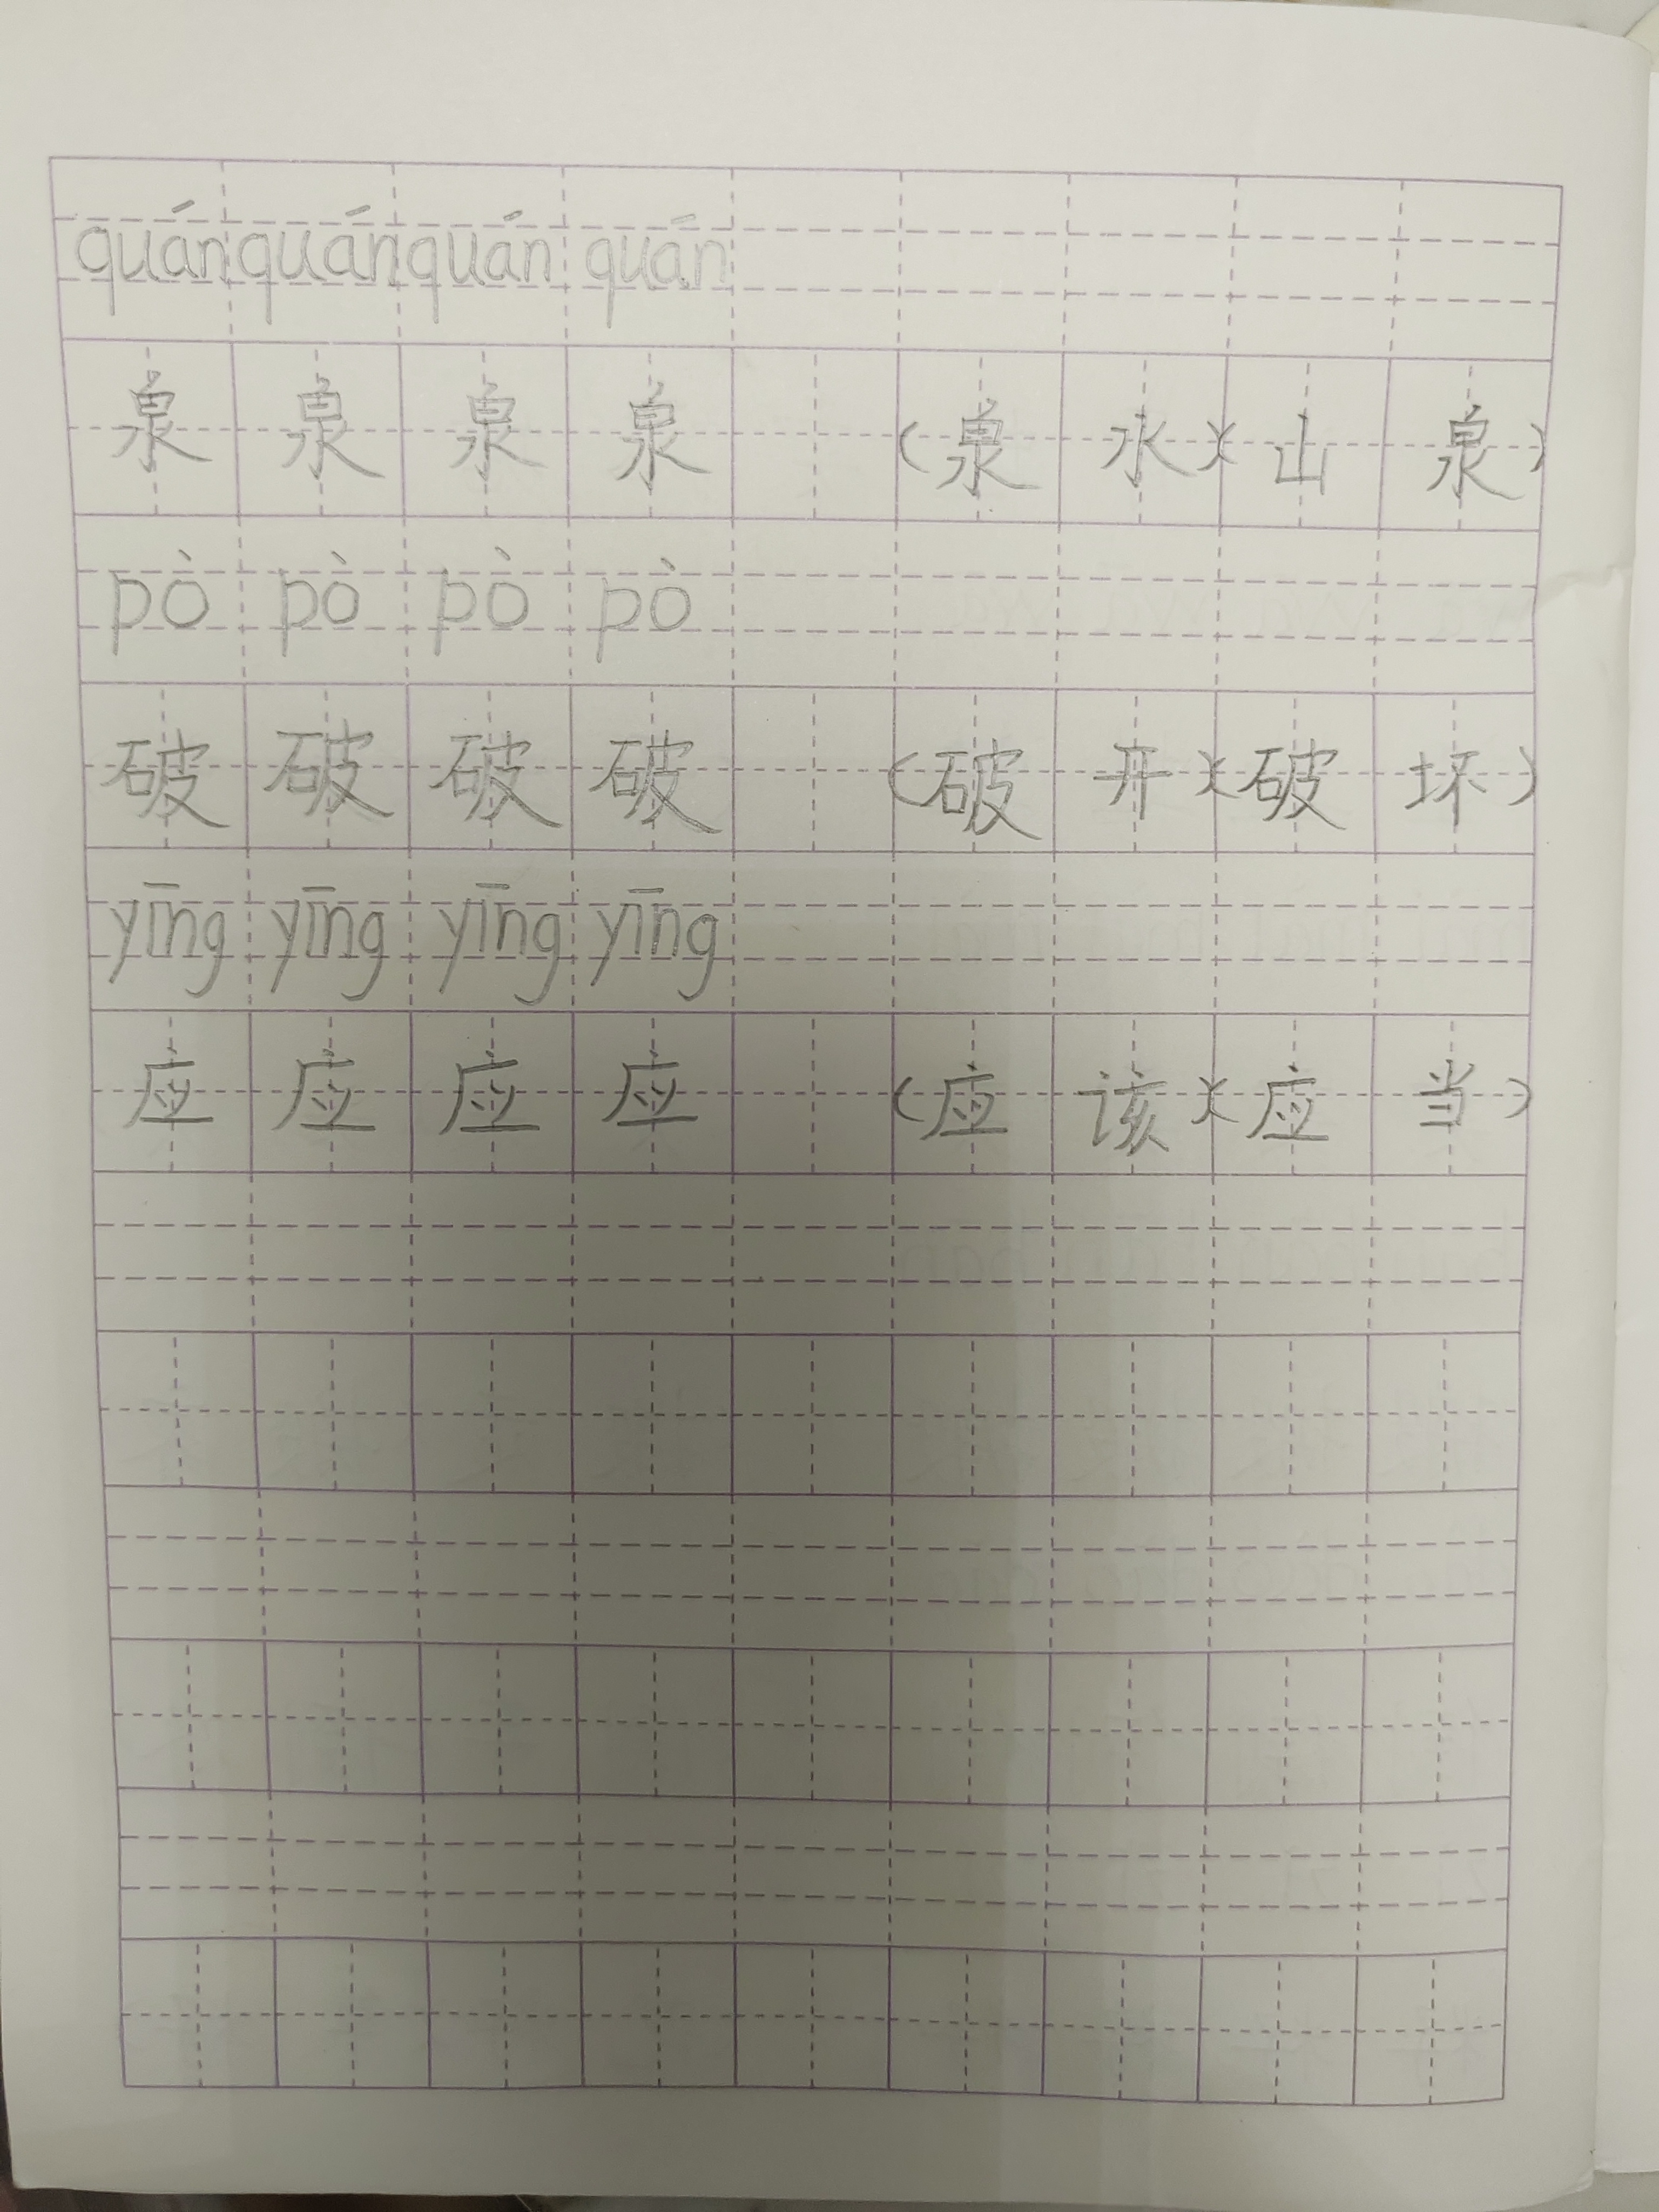 quán quán quán quán
泉 泉 泉 泉 (泉水)(山泉)
pò pò pò pò
破 破 破 破 (破开)(破坏)
yīng yīng yīng yīng
应 应 应 应 (应该)(应当)